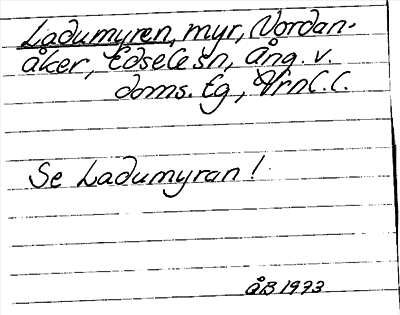 Ladumyren, myr, Nordan-
åker, Edsele sn, Ång. v.
doms. Eg,
Se Ladumyran!
ÅB 1973